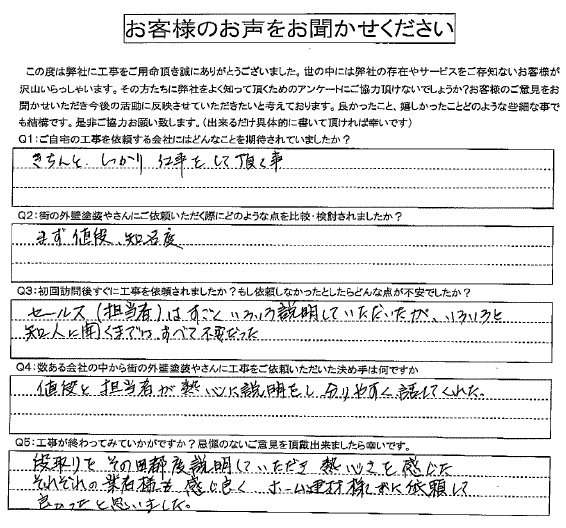 お客様のお声をお聞かせください
この度は弊社に工事をご用命頂き誠にありがとうございました。世の中には弊社の存在やサービスをご存知ないお客様が
沢山いらっしゃいます。その方たちに弊社をよく知って頂くためのアンケートにご協力頂けないでしょうか?お客様のご意見をお
聞かせいただき今後の活動に反映させていただきたいと考えております。良かったこと、嬉しかったことどのような些細な事で
も結構です。是非ご協力お願い致します。(出来るだけ具体的に書いて頂ければ幸いです)
Q1:ご自宅の工事を依頼する会社にはどんなことを期待されていましたか?
きちんと、しっかり仕事をして頂く事
Q2:街の外壁塗装やさんにご依頼いただく際にどのような点を比較・検討されましたか?
まず値段、知名度
Q3:初回訪問後すぐに工事を依頼されましたか?もし依頼しなかったとしたらどんな点が不安でしたか?
セールス(担当者)はすごくいろいろ説明していただいたが、いろいろと
知人に聞くまでは、すべて不安だった
Q4:数ある会社の中から街の外壁塗装やさんに工事をご依頼いただいた決め手は何ですか
値段と担当者が熱心に説明をし、分りやすく話してくれた。
Q5:工事が終わってみていかがですか?忌憚のないご意見を頂戴出来ましたら幸いです。
段取りをその都度説明していただき熱心さを感じた
それぞれの業者様も感じ良く ホーム建材様に依頼して
良かったと思いました。